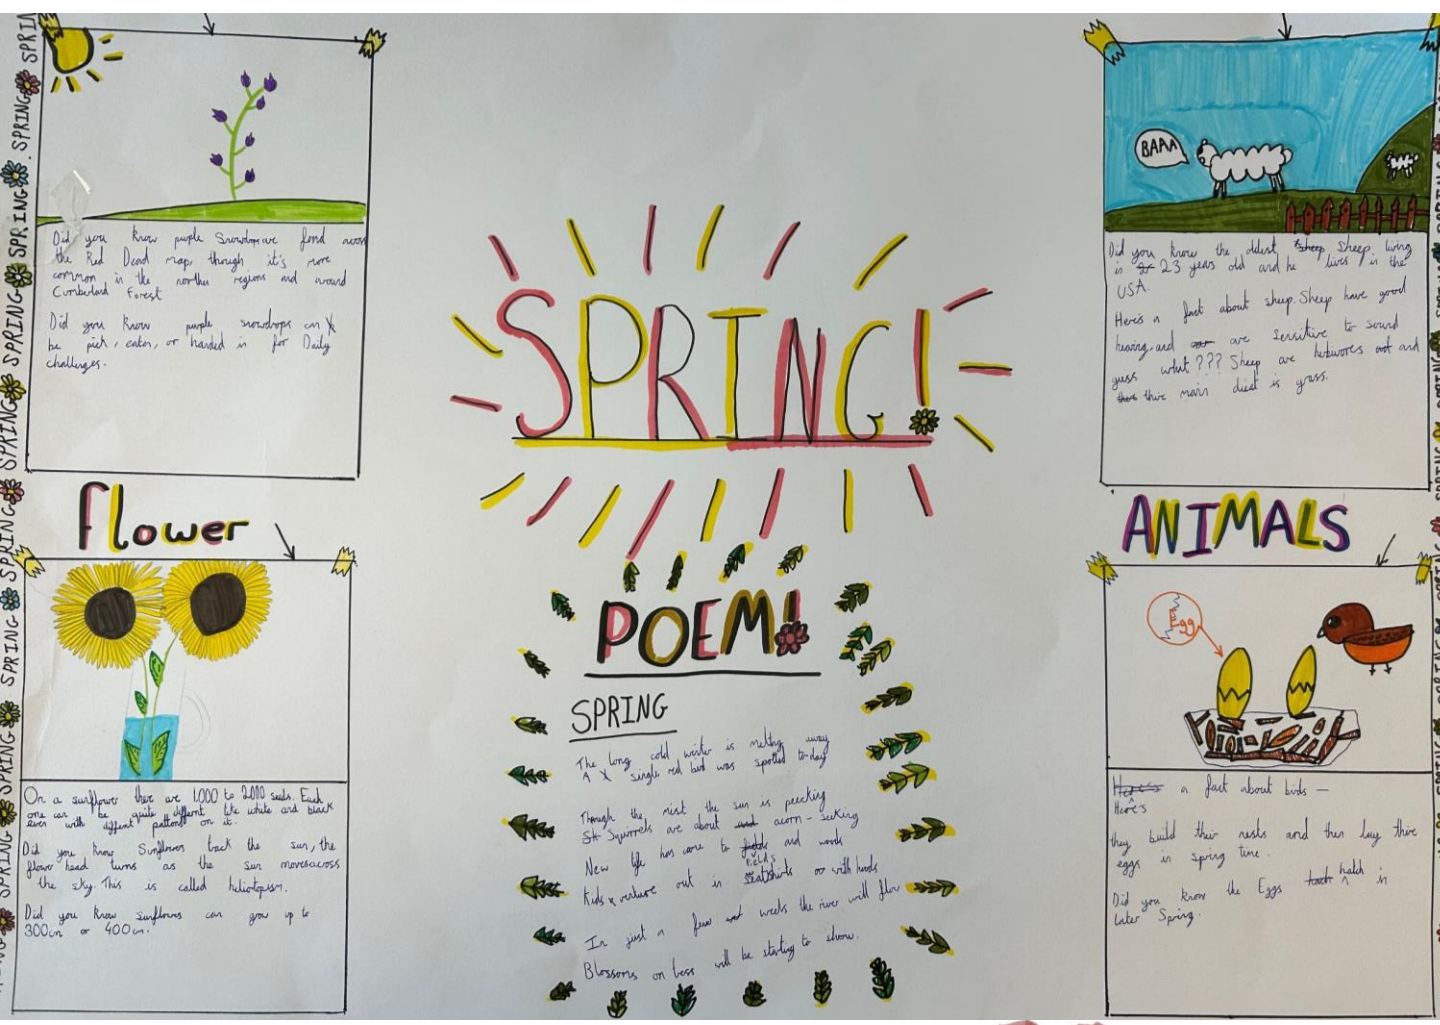 SPRING!
Did you know purple Snowdrops are fond across
the Red Dead map, though it's more
common in the norther regions and around
Cumberland Forest
Did you know purple snowdrops can
be pick, eaten, or handed in for Daily
challenges.
flower
On a sunflower ther are 1,000 to 2,000 seeds. Each
one can be quite differnt like white and black
even with diffent pattons on it.
Did you know Sunflowers track the sun, the
flower head turns as the sun moves across
the sky. This is called heliotopism.
Did you know sunflowers can grow up to
300cm or 400cm.
POEM!
SPRING
The long cold winter is melting away
A single red bird was spotted to-day
Though the mist the sun is peecking
Squirrels are about acorn-seeking
New life has come to fields and woods
Kids venture out in or with hoods
In just a few weeks the river will flow
Blossoms on will be starting to show.
BAAA
Did you know the oldest sheep Sheep living
is 23 years old and he lives in the
USA.
Here's a fact about sheep. Sheep have good
hearing and are sensitive to sound
guess what??? Sheep are herbivores and
thire main diead is grass.
ANIMALS
Egg
Here's a fact about birds —
Here's
they build their nests and then lay thire
eggs in spring time.
Did you know the Eggs hatch in
later Spring.
SPRING SPRING SPRING SPRING SPRING SPRING SPRING SPRING SPRING